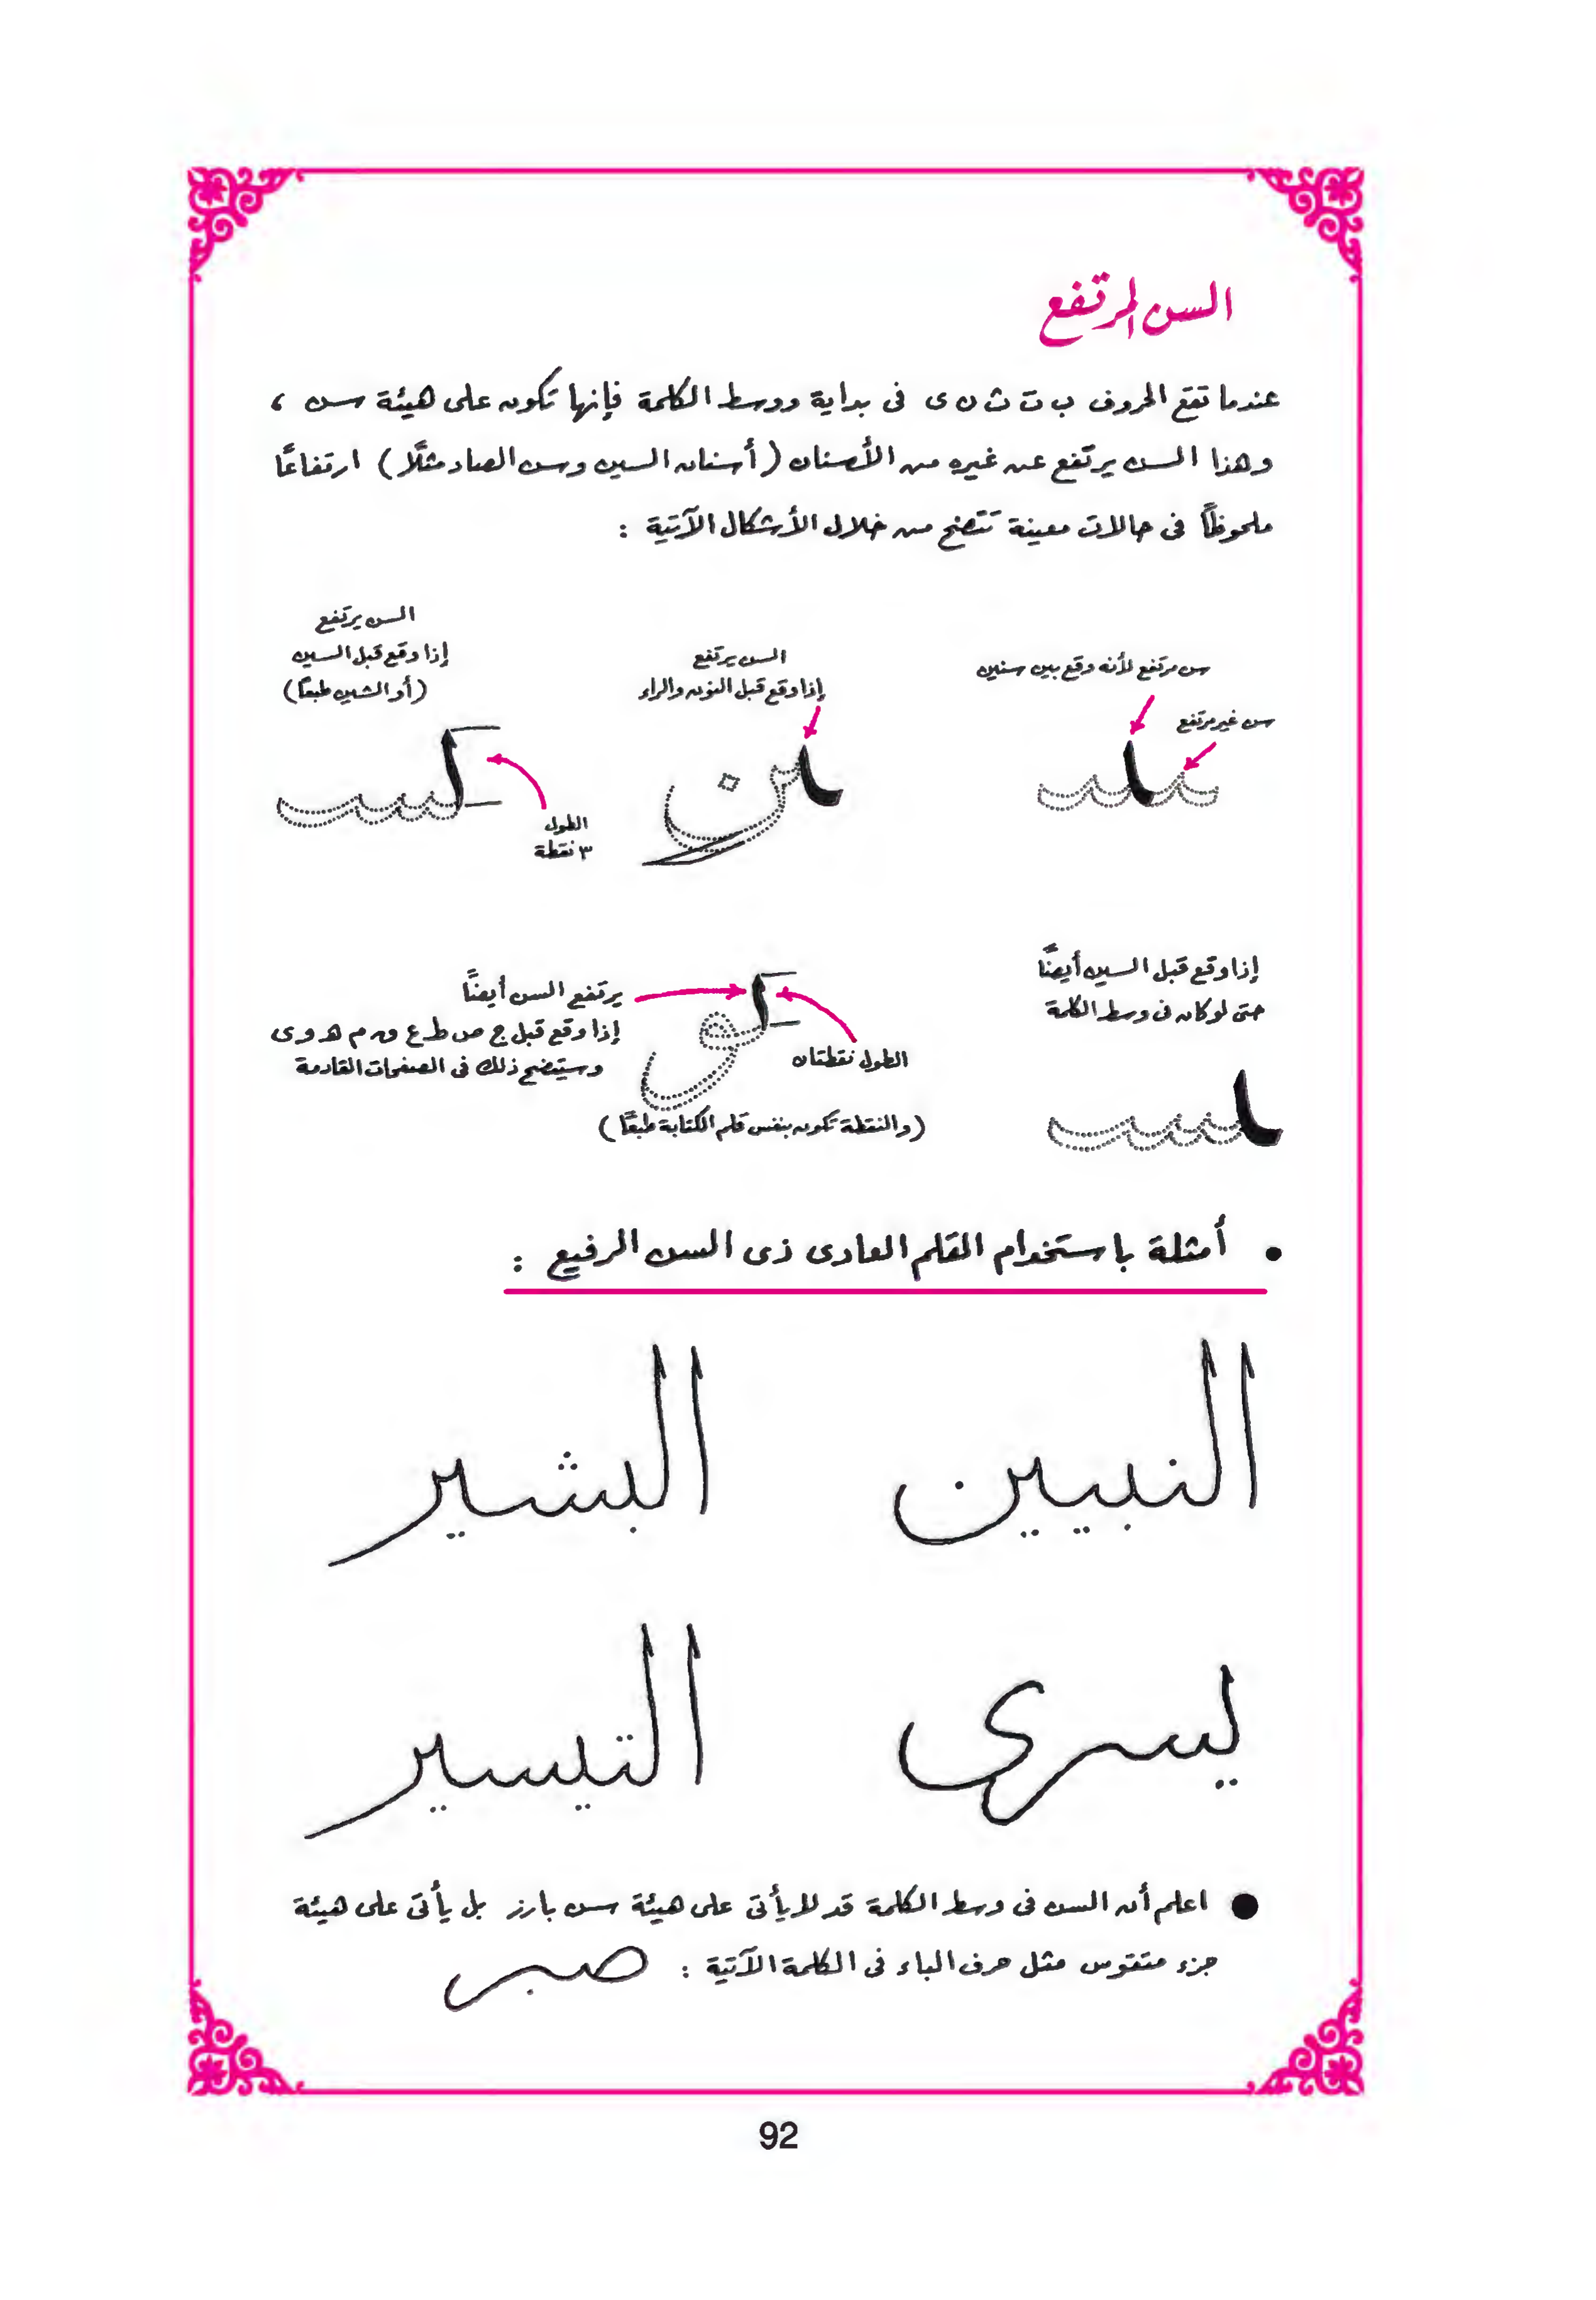 السن المرتفع
عندما تقع الحروف ب ت ث ن ى فى بداية ووسط الكلمة فإنها تكون على هيئة سن ،
وهذا السن يرتفع عن غيره من الأسنان ( أسنان السين وسن الصاد مثلًا ) ارتفاعًا
ملحوظًا فى حالات معينة تتضح من خلال الأشكال الآتية :
سن مرتفع لأنه وقع بين سنين
سن غير مرتفع
السن يرتفع
إذا وقع قبل النون والراء
السن يرتفع
إذا وقع قبل السين
(أو الشين طبعًا)
الطول
٣ نقطة
إذا وقع قبل السين أيضًا
حتى لو كان فى وسط الكلمة
يرتفع السن أيضًا
إذا وقع قبل ج ص ط ع ق م هـ و ى
وسيتضح ذلك فى الصفحات القادمة
الطول نقطتان
(والنقطة تكون بنفس قلم الكتابة طبعًا)
• أمثلة باستخدام القلم العادى ذى السن الرفيع :
النبيين البشير
يسرى التيسير
● اعلم أن السن فى وسط الكلمة قد لا يأتى على هيئة سن بارز بل يأتى على هيئة
جزء متقوس مثل حرف الباء فى الكلمة الآتية : صبر
92